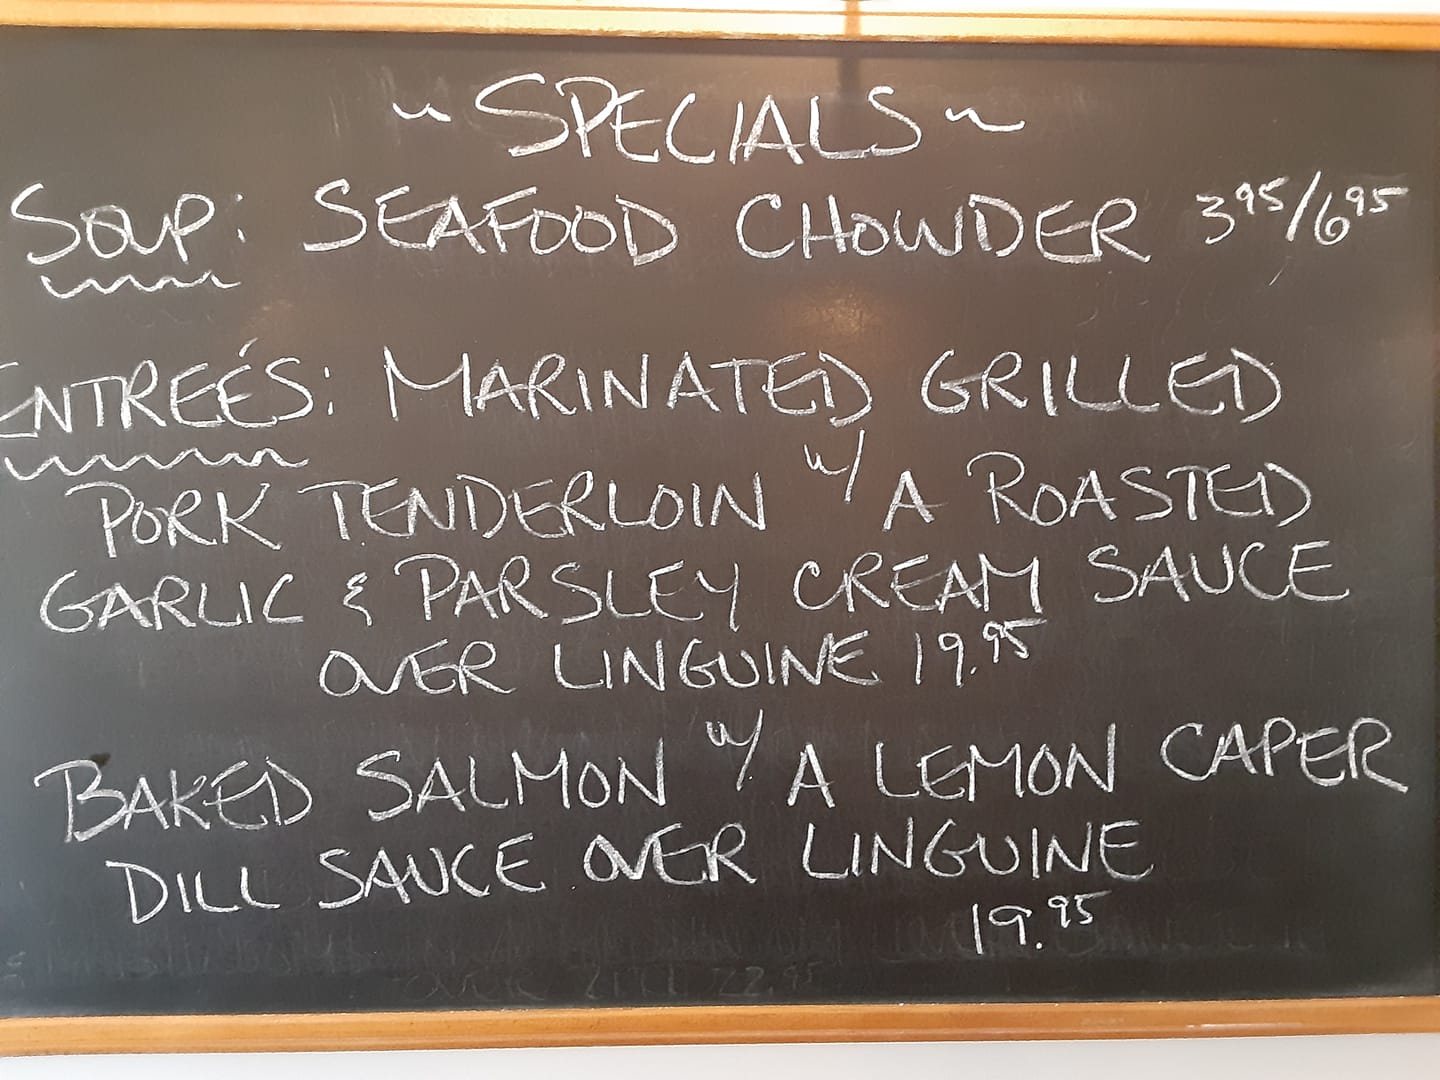 ~ SPECIALS ~
SOUP: SEAFOOD CHOWDER 3⁹⁵/6⁹⁵
ENTREÉS: MARINATED GRILLED
PORK TENDERLOIN w/ A ROASTED
GARLIC & PARSLEY CREAM SAUCE
OVER LINGUINE 19.⁹⁵
BAKED SALMON w/ A LEMON CAPER
DILL SAUCE OVER LINGUINE
19.⁹⁵
OVER ZITI 22.⁹⁵